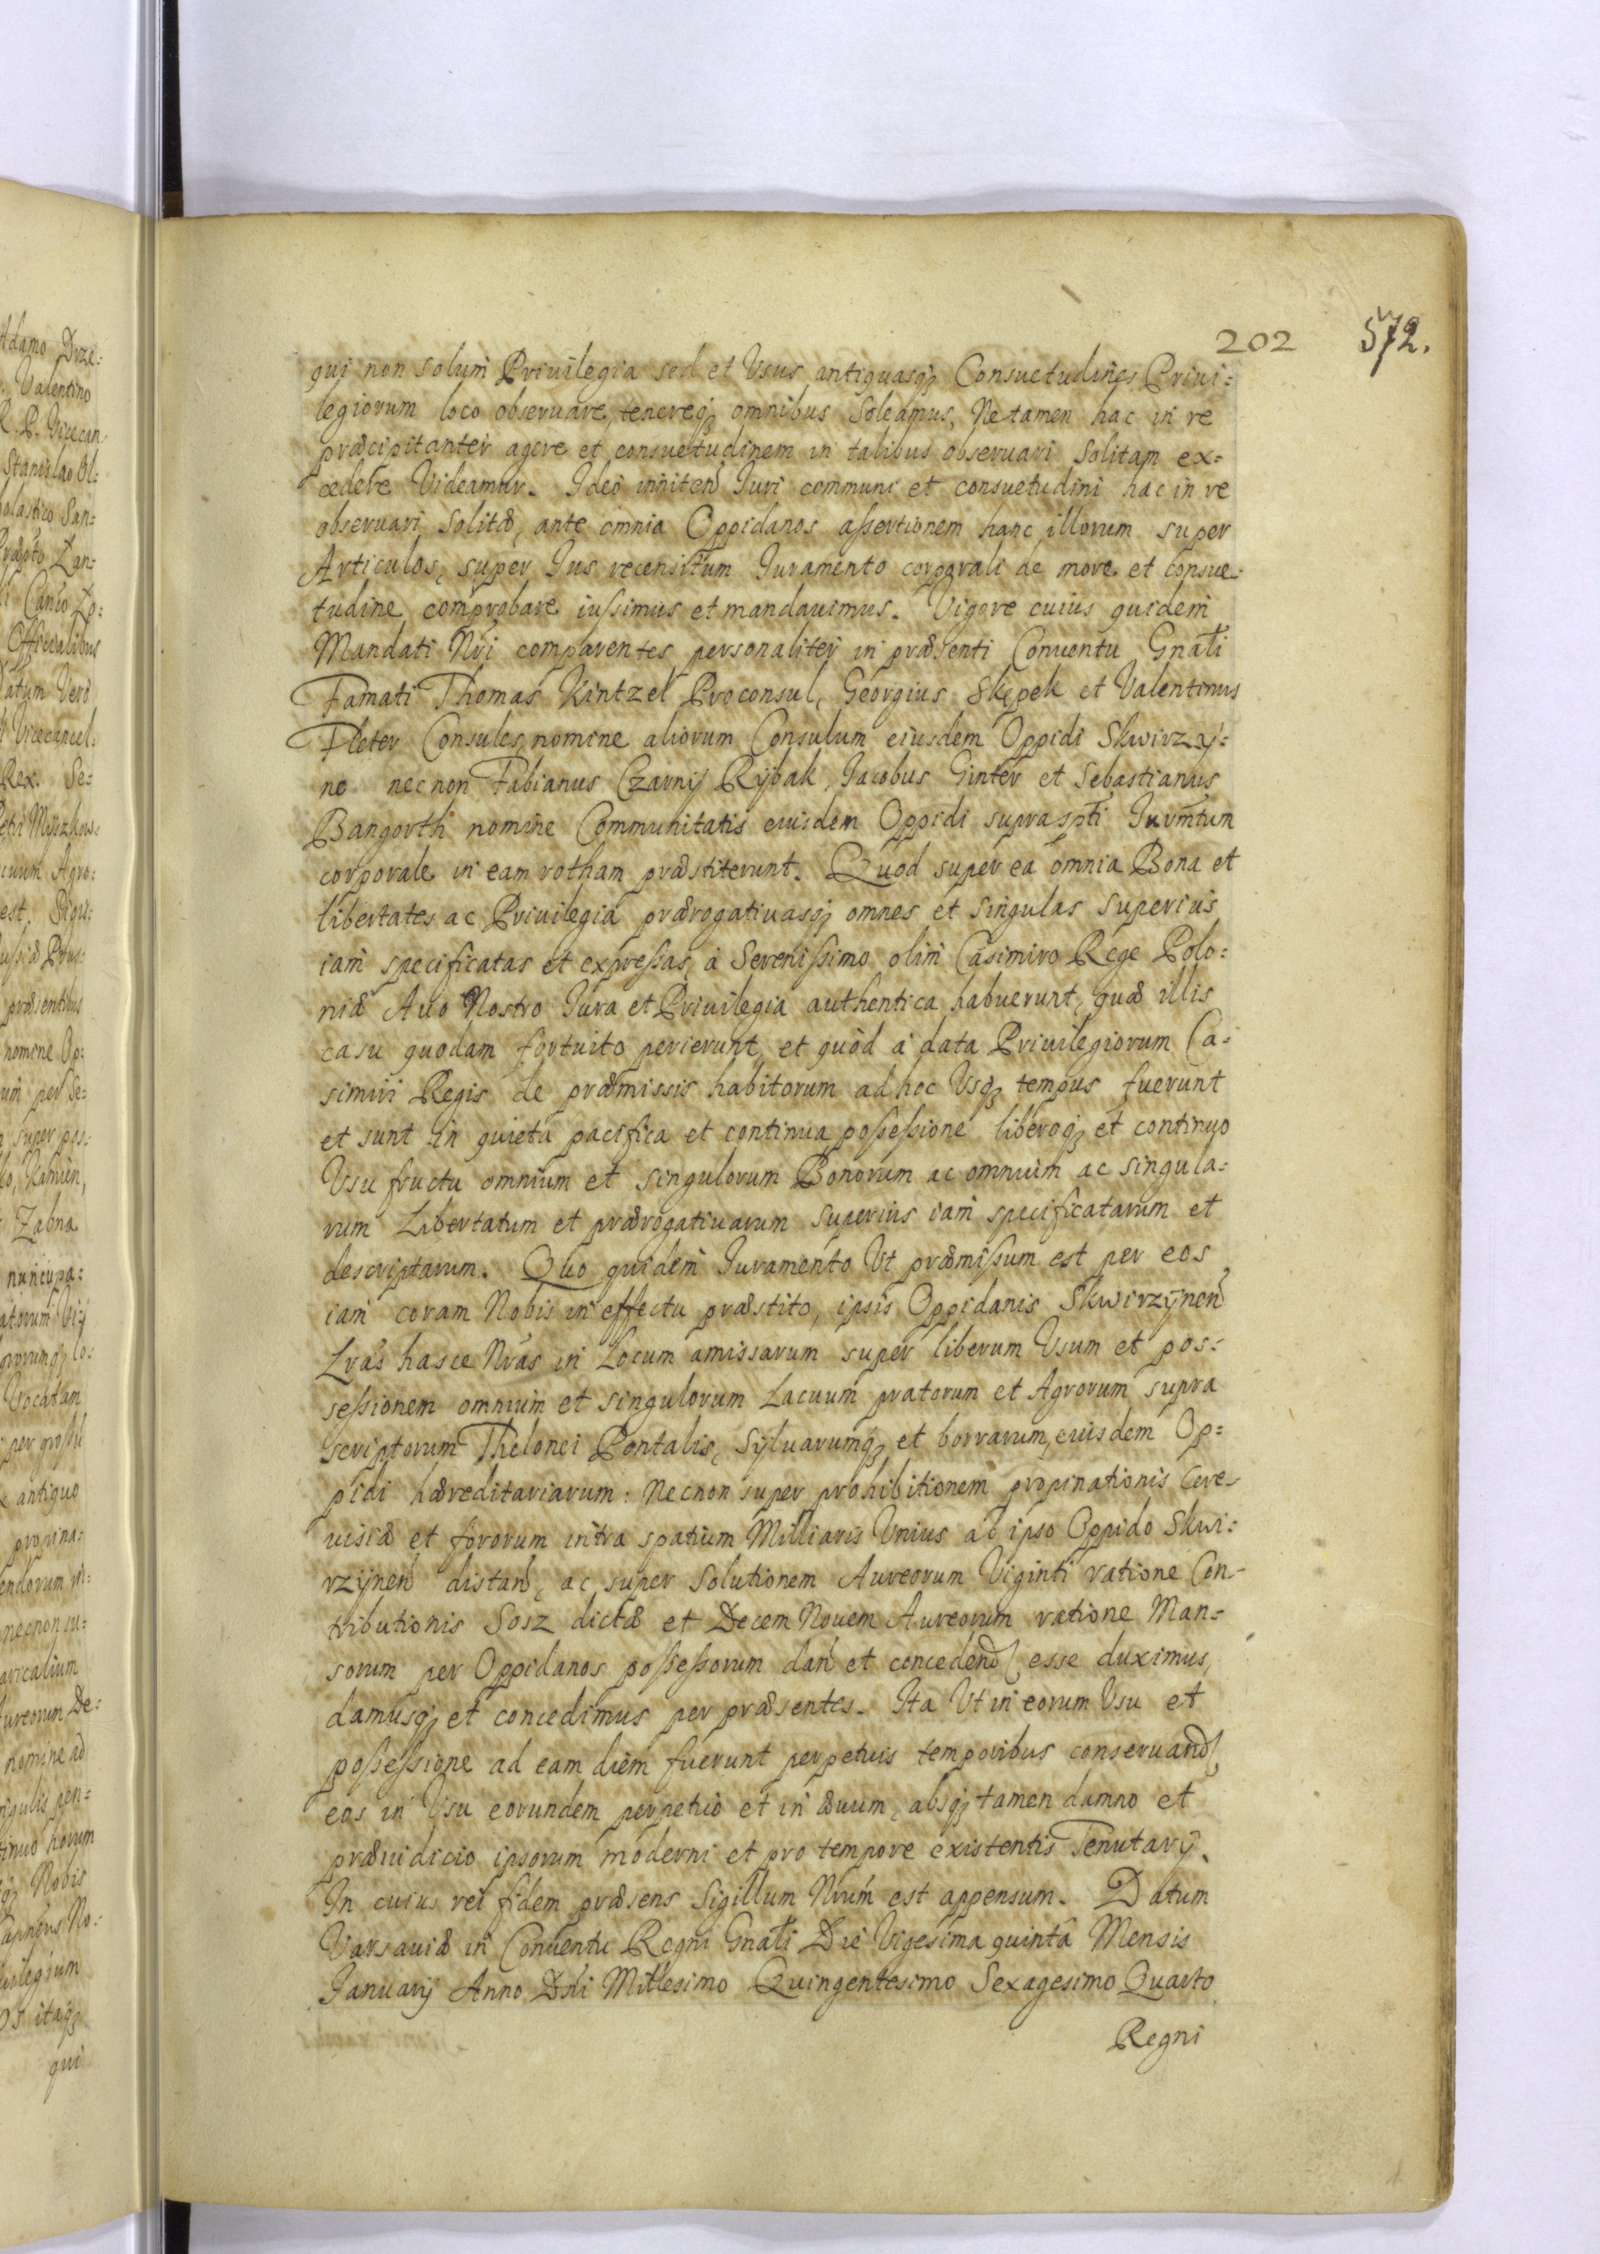 202 572.
qui non solum Priuilegia sed et Usus antiquasq; Consuetudines Priui=
legiorum loco obseruare, tenereq; omnibus soleamus, Ne tamen hac in re
præcipitanter agere et consuetudinem in talibus obseruari solitam ex=
cedere Videamur. Ideo inniten Iuri communi et consuetudini hac in re
obseruari solitæ, ante omnia Oppidanos assertionem hanc illorum super
Articulos, super Ius recensitum Iuramento corporali de more et consue=
tudine comprobare iussimus et mandauimus. Vigore cuius quidem
Mandati Nri comparentes personaliter in præsenti Conuentu Gnali
Famati Thomas Kintzel Proconsul, Georgius Skępek et Valentinus
Pleter Consules, nomine aliorum Consulum eiusdem Oppidi Skwirzy=
ne necnon Fabianus Czarny Rybak, Iacobus Ginter et Sebastianus
Bangorth nomine Communitatis eiusdem Oppidi suprascpti Iurmtum
corporale in eam rotham præstiterunt. Quod super ea omnia Bona et
libertates ac Priuilegia prærogatiuasq; omnes et singulas superius
iam specificatas et expressas, à Serenissimo olim Casimiro Rege Polo=
niæ Auo Nostro Iura et Priuilegia authentica habuerunt, quæ illis
casu quodam fortuito perierunt, et quòd à data Priuilegiorum Ca=
simiri Regis de præmissis habitorum ad hoc Usq; tempus fuerunt
et sunt in quieta pacifica et continua possessione liberoq; et continuo
Usu fructu omnium et singulorum Bonorum ac omnium ac singula=
rum Libertatum et prærogatiuarum superius iam specificatarum et
descriptarum. Quo quidem Iuramento Ut præmissum est per eos
iam coram Nobis in effectu præstito, ipsis Oppidanis Skwirzynen
Lras hasce Nras in Locum amissarum super liberum Usum et pos=
sessionem omnium et singulorum Lacuum pratorum et Agrorum supra
scriptorum Thelonei Pontalis, Syluarumq; et borrarum, eiusdem Op=
pidi hæreditariarum: Necnon super prohibitionem propinationis Cere=
uisiæ et fororum intra spatium Milliaris Unius ab ipso Oppido Skwi=
rzynen distan, ac super solutionem Aureorum Viginti ratione Con=
tributionis Sosz dictæ et Decem Nouem Aureorum ratione Man=
sorum per Oppidanos possessorum dan et conceden esse duximus,
damusq; et concedimus per præsentes. Ita Ut in eorum Usu et
possessione ad eam diem fuerunt perpetuis temporibus conseruand
eos in Usu eorundem perpetuo et in æuum, absq; tamen damno et
præiudicio ipsorum moderni et pro tempore existentis Tenutarij.
In cuius rei fidem præsens Sigillum Nrum est appensum. Datum
Varsauiæ in Conuentu Regni Gnali Die Vigesima quinta Mensis
Ianuarij Anno Dni Millesimo Quingentesimo Sexagesimo Quarto
Regni